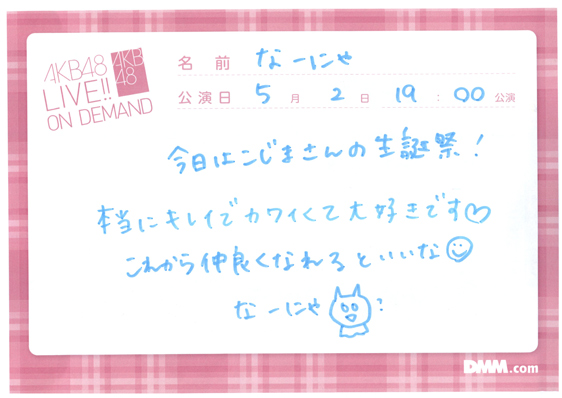 AKB48
LIVE!!
ON DEMAND
AKB
48
名前 なーにゃ
公演日 5月2日 19:00公演
今日はこじまさんの生誕祭!
本当にキレイでカワイくて大好きです♡
これから仲良くなれるといいな☺
なーにゃ ?
DMM.com